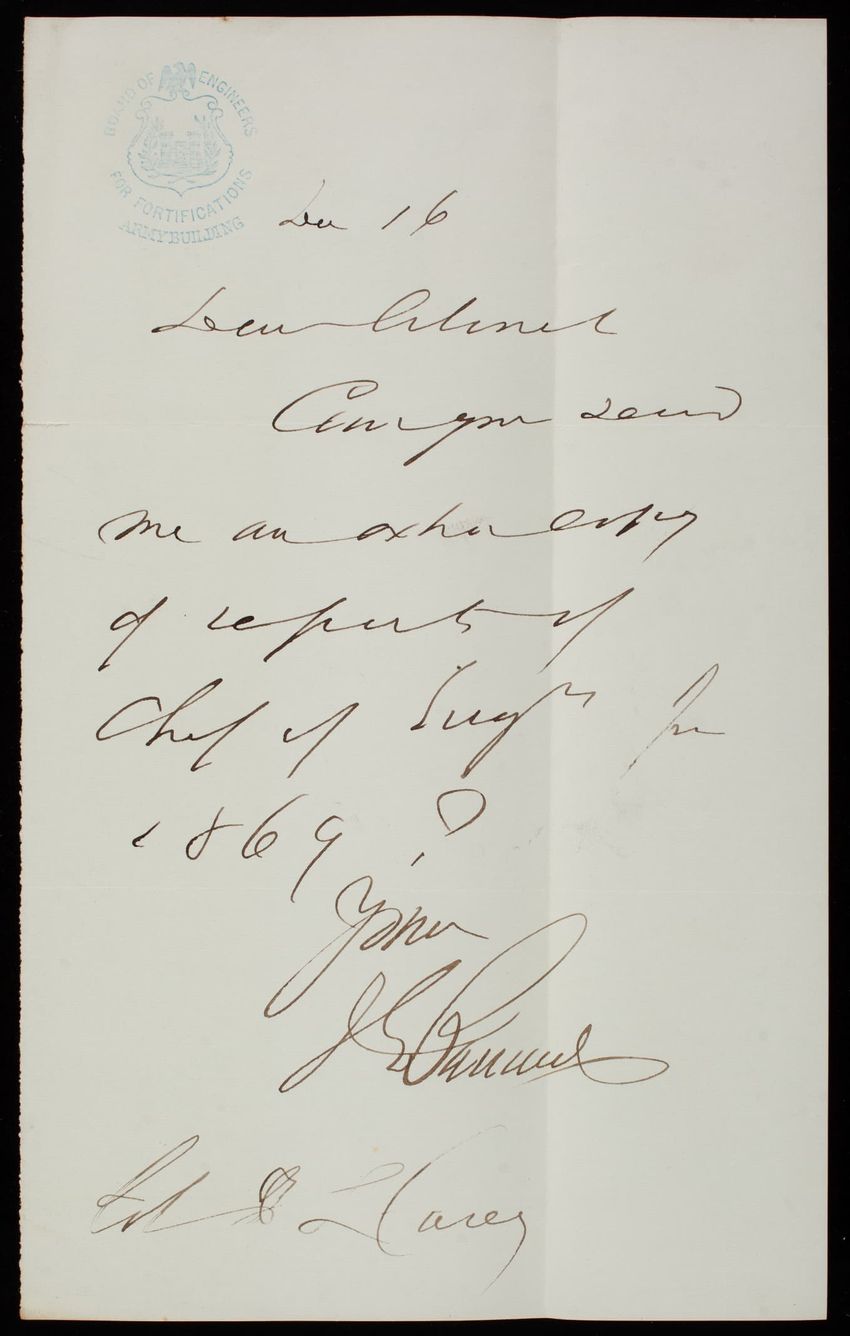 BOARD OF ENGINEERS
FOR FORTIFICATIONS
ARMY BUILDING
Dec 16
Dear Colonel
Can you send
me an extra copy
of reports of
Chief of Engrs for
1869?
Yours
J G Barnard
Col T L Casey